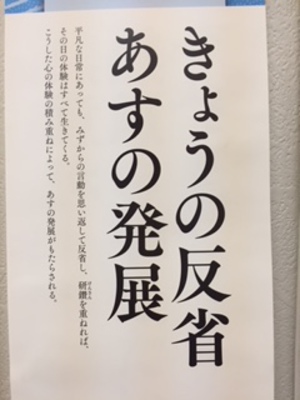 きょうの反省
あすの発展
平凡な日常にあっても、みずからの言動を思い返して反省し、研鑽を重ねれば、
その日の体験はすべて生きてくる。
こうした心の体験の積み重ねによって、あすの発展がもたらされる。